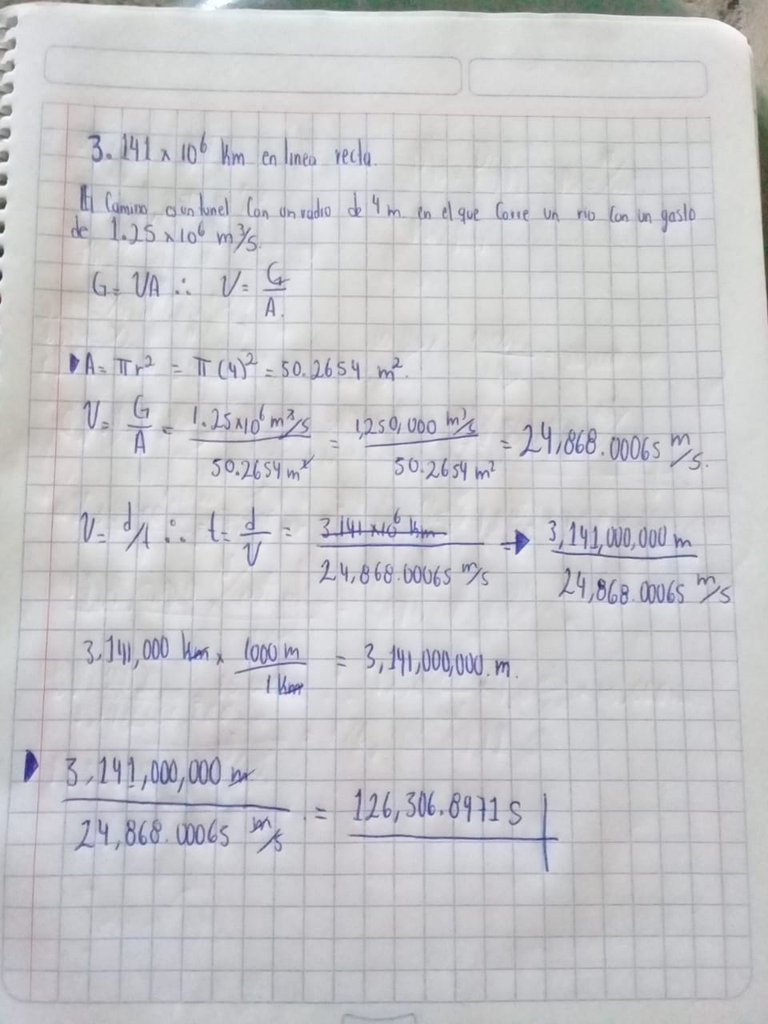 3.141 x 10⁶ Km en linea recta.
El Camino es un tunel Con un radio de 4 m en el que Corre un rio Con un gasto
de 1.25 x 10⁶ m³/s.
G = VA ∴ V = G/A.
A = πr² = π(4)² = 50.2654 m².
V = G/A = 1.25x10⁶ m³/s / 50.2654 m² = 1,250,000 m³/s / 50.2654 m² = 24,868.00065 m/s.
V = d/t ∴ t = d/V = 3.141 x10⁶ Km / 24,868.00065 m/s → 3,141,000,000 m / 24,868.00065 m/s
3,141,000 Km x 1000 m / 1 Km = 3,141,000,000 m.
3,141,000,000 m / 24,868.00065 m/s = 126,306.8971 s